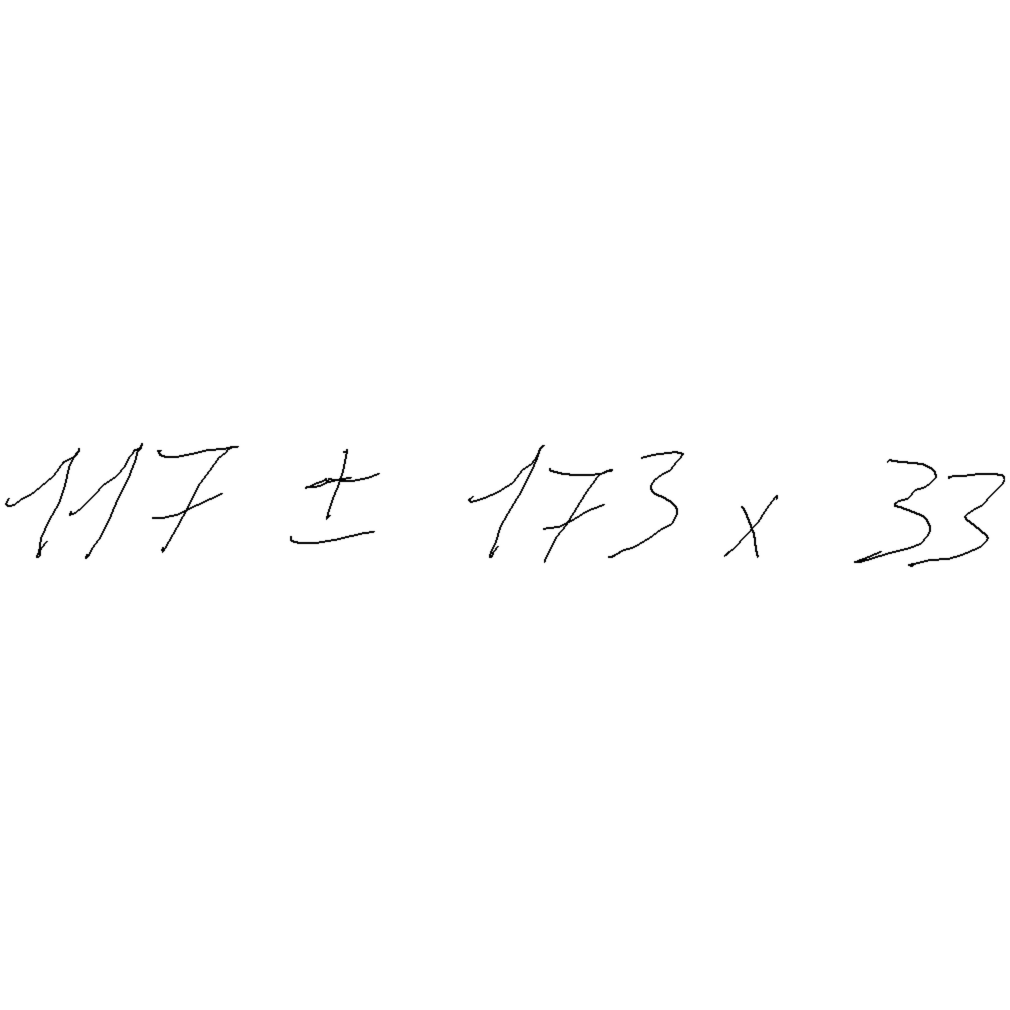 117 ± 173 x 33